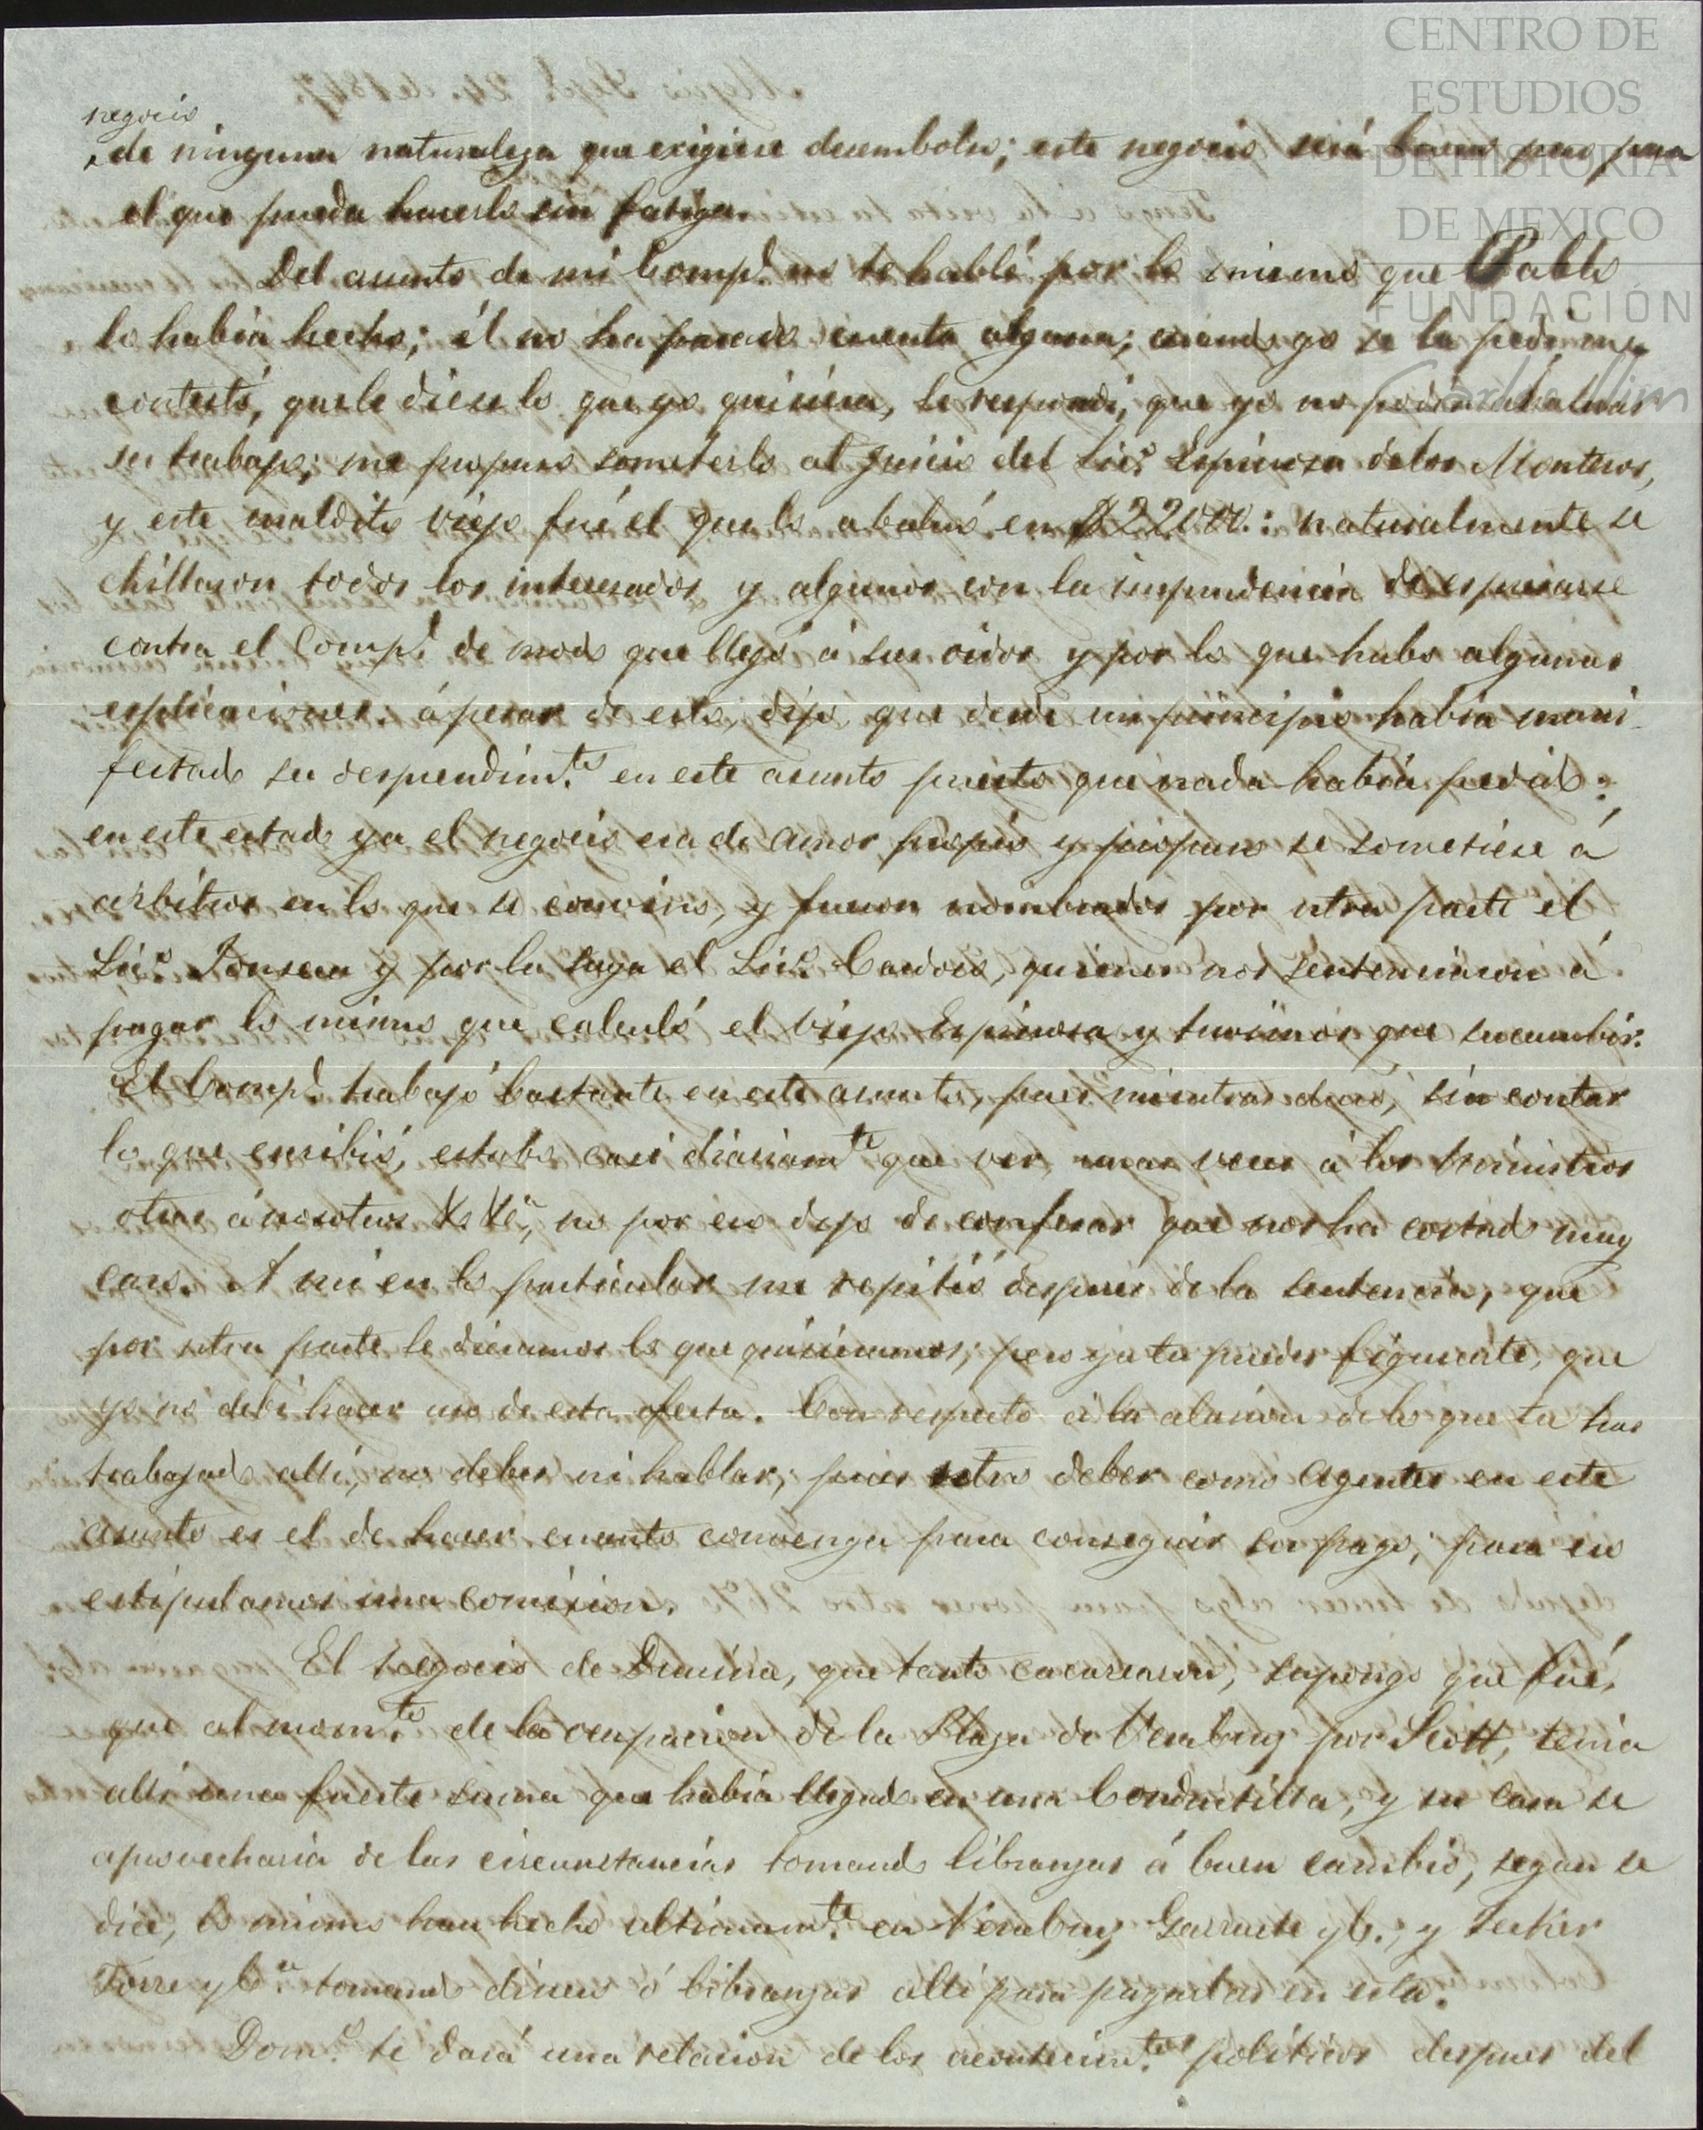 CENTRO DE
ESTUDIOS
DE HISTORIA
DE MEXICO
FUNDACIÓN
negocio
de ninguna naturaleza que exigiese desembolso; este negocio será bueno pero para
el que pueda hacerlo sin fatiga.
Del asunto de mi Comp.e no te hablé por lo mismo que Pablo
lo había hecho; él no ha pasado cuenta alguna; cuando yo se la pedi me
contestó, que le diese lo que yo quisiera, le respondí, que yo no podía abaluar
su trabajo; me propuso someterlo al juicio del Lic.o Espinosa de los Monteros,
y este maldito viejo fué el que lo abaluó en : naturalmente se
chillaron todos los interesados y algunos con la imprudencia de espresarse
contra el Comp.e de modo que llegó á sus oidos y por lo que hubo algunas
esplicaciones. á pesar de esto, dijo que desde un principio había mani-
festado su desprendim.to en este asunto puesto que nada había pedido:
en este estado ya el negocio era de amor propio y propuso se sometiese á
arbitros en lo que se convino, y fueron nombrados por ntra parte el
Lic.o Fonseca y por la suya el Lic.o quienes nos sentenciaron á
pagar lo mismo que calculó el viejo Espinosa y tuvimos que sucumbir.
El Comp.e trabajó bastante en este asunto, pues mientras duró, sin contar
lo que escribió, estubo casi diariam.te que ver, unas veces á los ministros
otras á nosotros &a &a, no por eso dejo de confesar que nos ha costado muy
caro. A mi en lo particular me repitió despues de la sentencia, que
por ntra parte le dieramos lo que quisieramos; pero ya tu puedes figurarte, que
yo no debi hacer uso de esta oferta. Con respecto á la alusion de lo que tu has
trabajado allí, no debes ni hablar, pues ntro deber como agentes en este
asunto es el de hacer cuanto convenga para conseguir su pago, para eso
estipulamos una comision.
El negocio de Drusina, que tanto cacarearon, supongo que fué,
que al mom.to de la ocupacion de la Plaza de Veracruz por Scott, tenia
allí una fuerte suma que habia llegado en una Conductilla, y su casa se
aprovecharia de las circunstancias tomando libranzas á buen cambio, segun se
dice, lo mismo han hecho ultimam.te en Veracruz y C.a, y
Torre y C.a tomando dinero ó libranzas allí para pagarlas en esta.
Dom.o te dará una relacion de los acontecim.tos politicos despues del